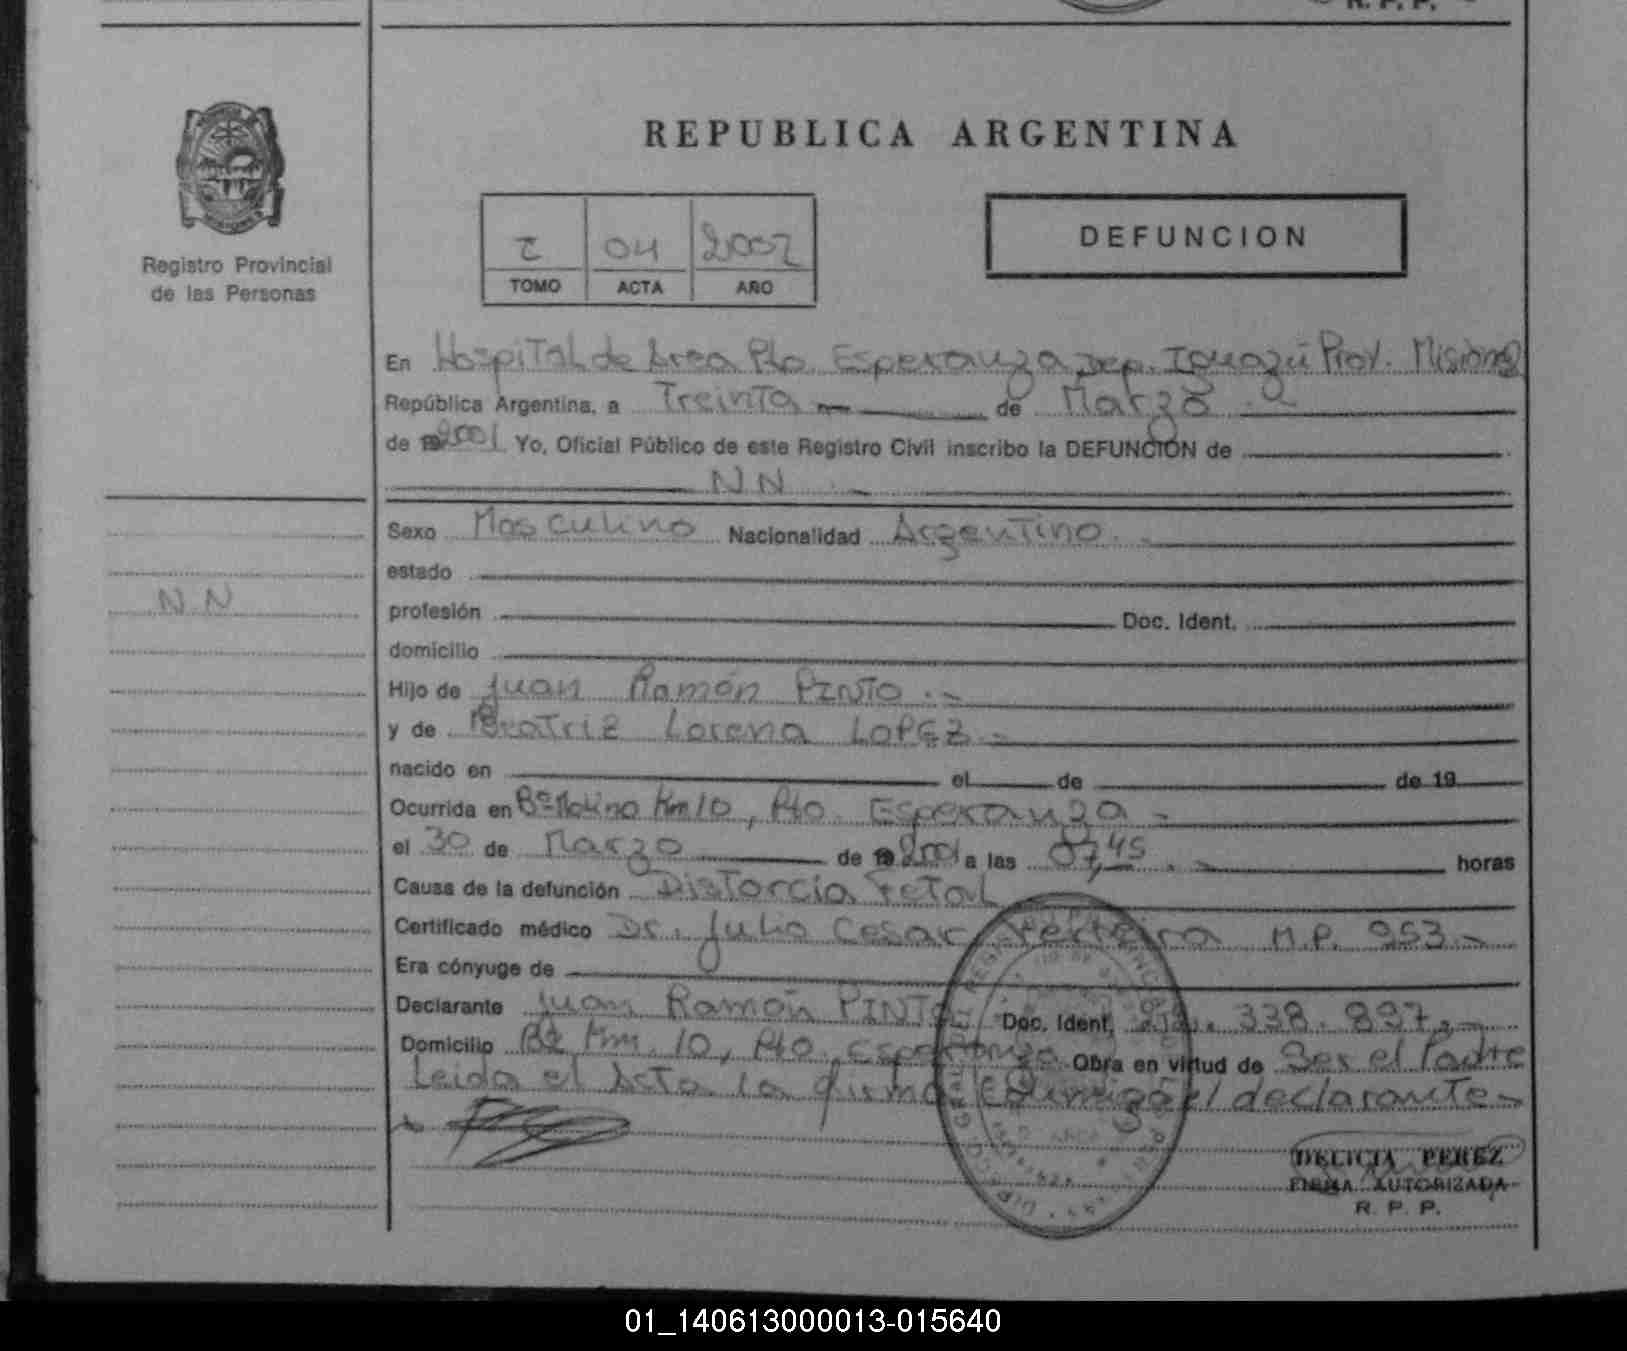 R. P. P.
REPUBLICA ARGENTINA
Registro Provincial
de las Personas
04 2002
TOMO ACTA AÑO
DEFUNCION
En Hospital de Area Pto. Esperanza Dep. Iguazú Prov. Misiones
República Argentina, a Treinta de Marzo
de 2001 Yo, Oficial Público de este Registro Civil inscribo la DEFUNCION de
NN
Sexo Masculino Nacionalidad Argentino.
estado
NN
profesión Doc. Ident.
domicilio
Hijo de Juan Ramón PINTO
y de Beatriz Lorena LOPEZ
nacido en el de de 19
Ocurrida en Bº Molino Km 10, Pto. Esperanza
el 30 de Marzo de 2001 a las 07,45 horas
Causa de la defunción Distorcia Fetal
Certificado médico Dr. Julio Cesar M.P. 953
Era cónyuge de
Declarante Juan Ramón PINTO Doc. Ident. 338.897
Domicilio Bº Km. 10, Pto. Esperanza Obra en virtud de Ser el Padre
Leida el Acta la firma el declarante
DELICIA PEREZ
FIRMA AUTORIZADA
R. P. P.
01_140613000013-015640